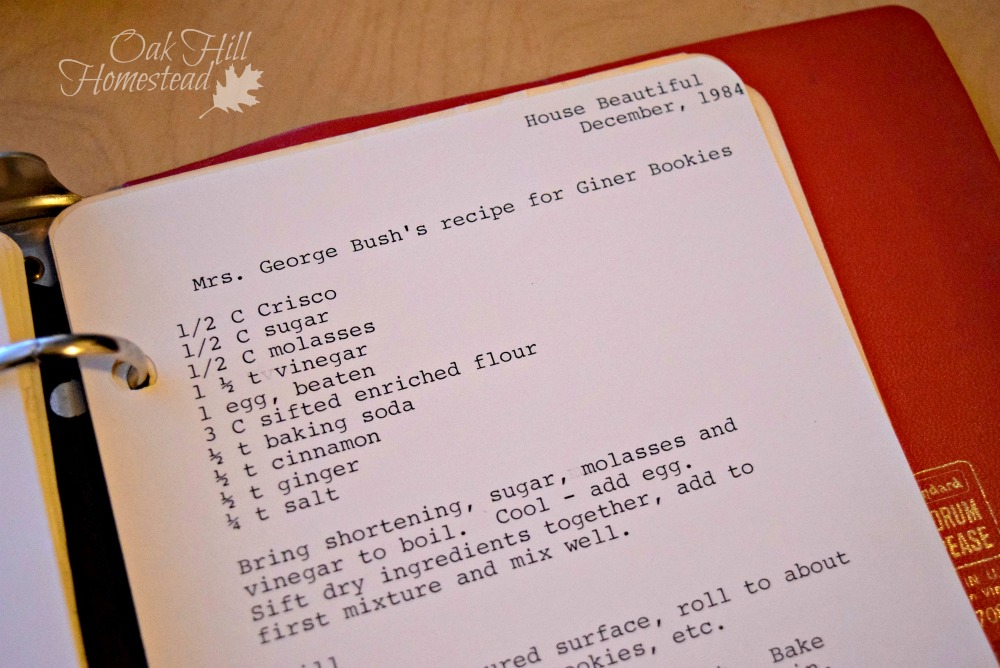 Oak Hill
Homestead
House Beautiful
December, 1984
Mrs. George Bush's recipe for Giner Bookies
1/2 C Crisco
1/2 C sugar
1/2 C molasses
1 ½ t vinegar
1 egg, beaten
3 C sifted enriched flour
½ t baking soda
½ t cinnamon
½ t ginger
¼ t salt
Bring shortening, sugar, molasses and
vinegar to boil. Cool - add egg.
Sift dry ingredients together, add to
first mixture and mix well.
surface, roll to about
etc.
Bake